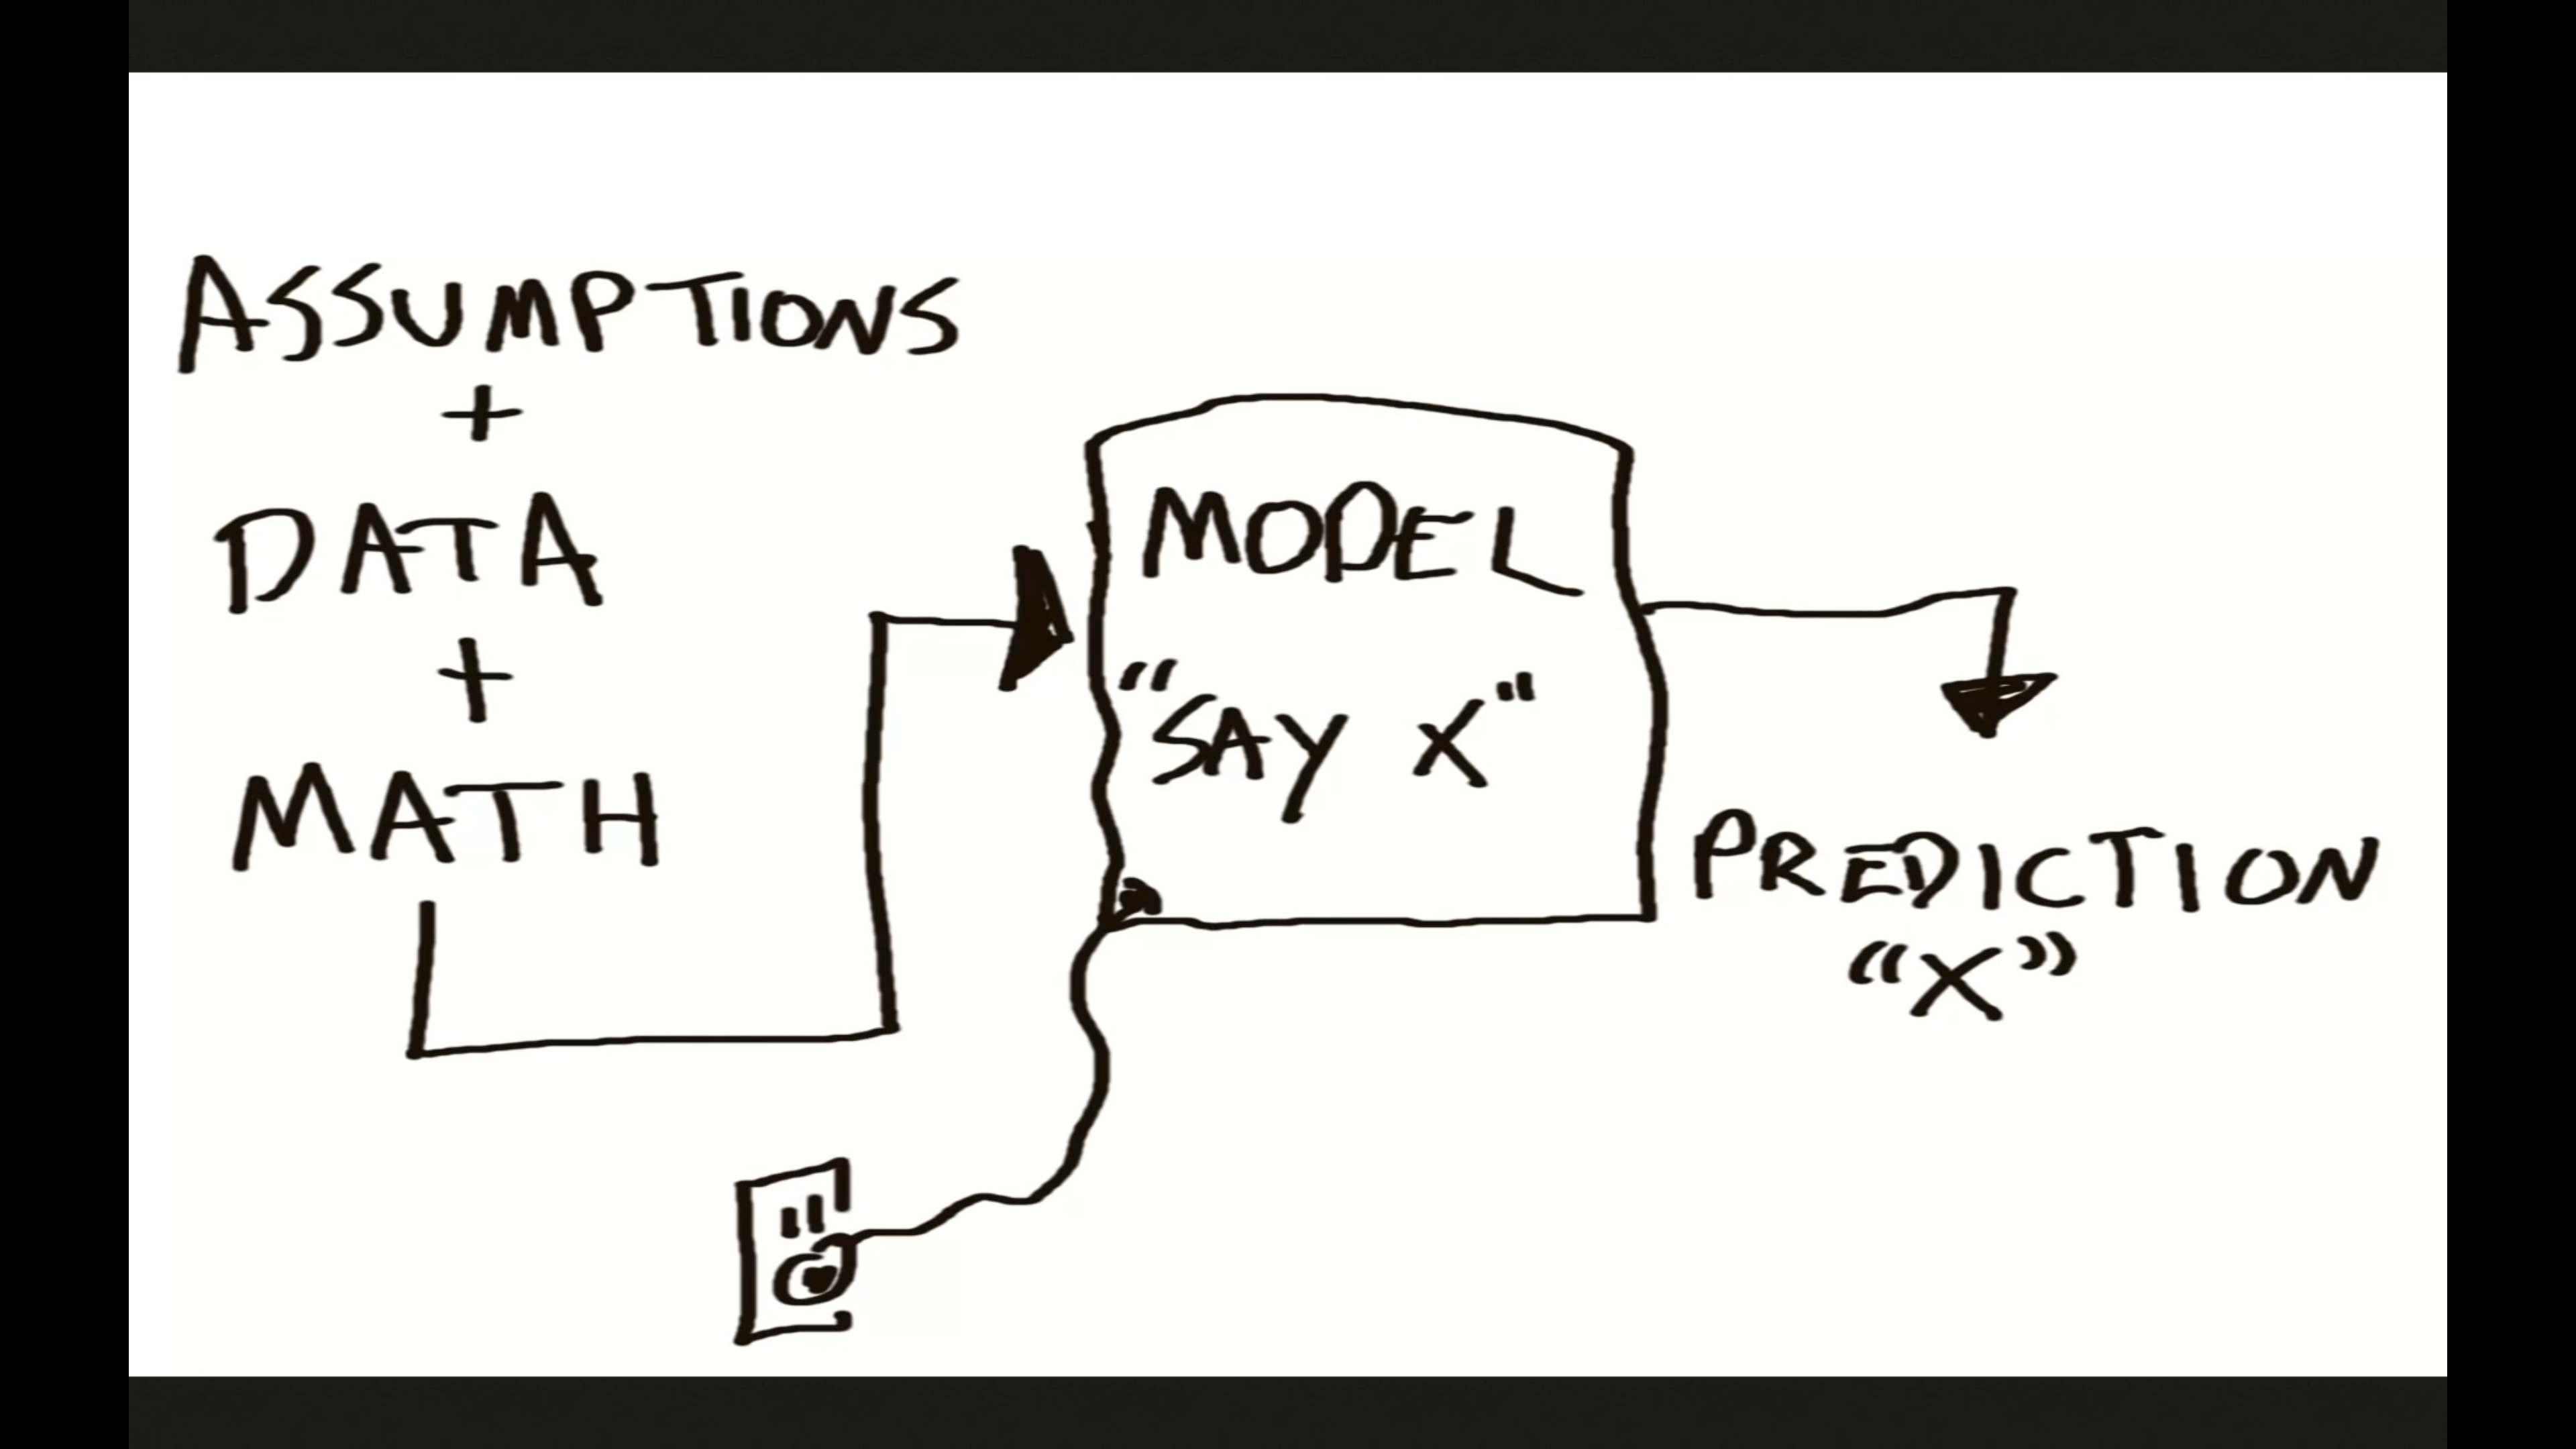 ASSUMPTIONS
+
DATA
+
MATH
MODEL
"SAY X"
PREDICTION
"X"